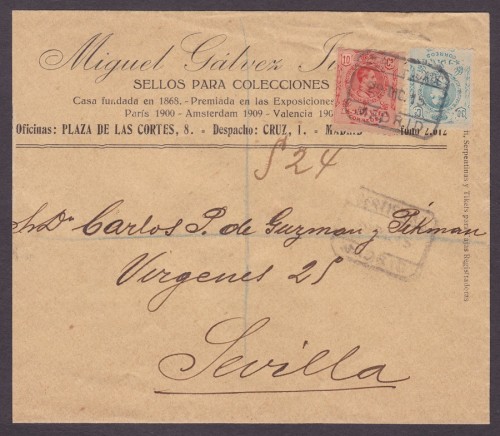 Miguel Gálvez
SELLOS PARA COLECCIONES
Casa fundada en 1868. - Premiada en las Exposiciones
París 1900 - Amsterdam 1909 - Valencia 190
Oficinas: PLAZA DE LAS CORTES, 8. - Despacho: CRUZ, 1. - MADRID
10 C
MADRID
24
Carlos P. de Guzman y
Virgenes 25
Sevilla
MADRID
Serpentinas y
Registradoras